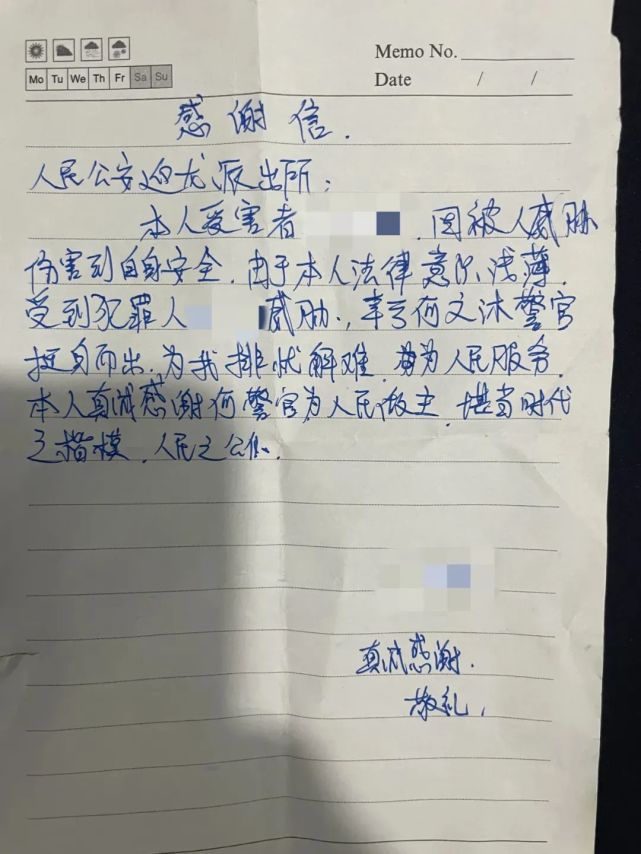 Memo No.
Mo Tu We Th Fr Sa Su
Date / /
感谢信.
人民公安迴龙派出所:
本人受害者 , 因被人威胁
伤害到自身安全. 由于本人法律意识浅薄.
受到犯罪人 威胁., 幸亏何文沐警官
挺身而出. 为我排忧解难. 为人民服务.
本人真诚感谢何警官为人民做主. 堪当时代
之楷模. 人民之公仆.
真诚感谢.
敬礼,